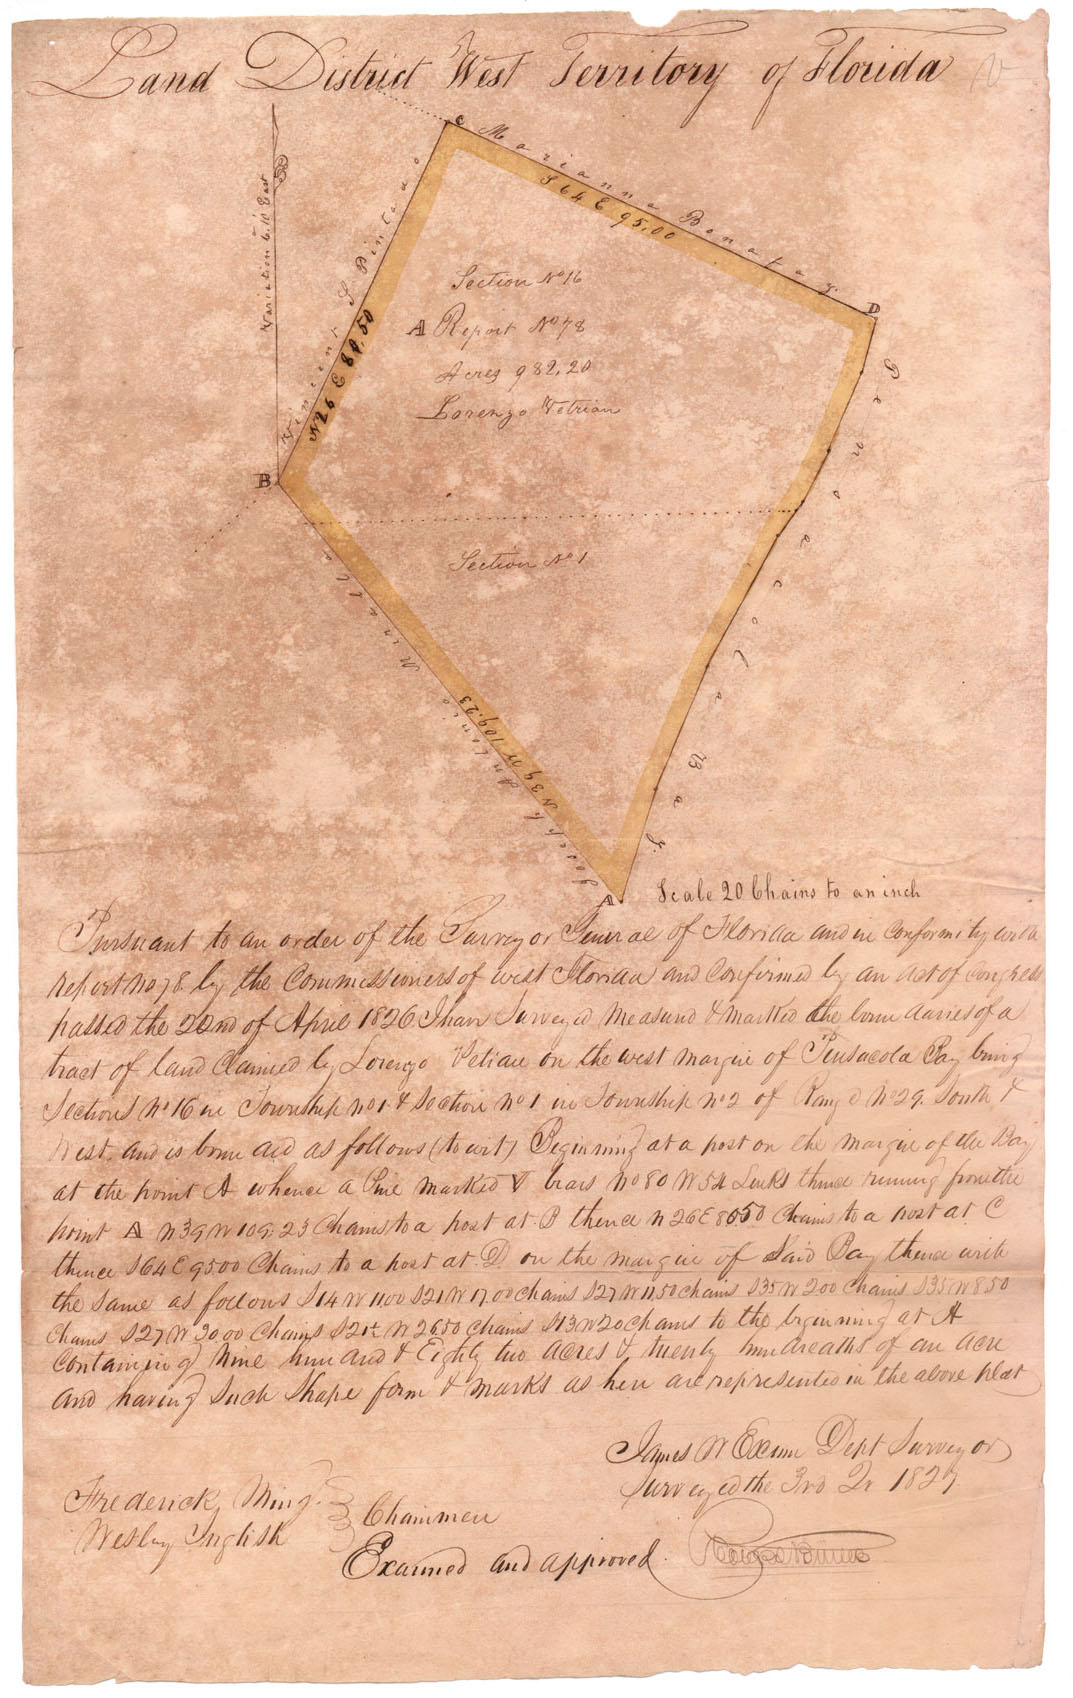 Land District West Territory of Florida
Variation 6.10 East
C
Marianna Bonafay.
S 64 E 95,00
D
Vincient S. Pintado
N 26 E 80,50
Section No 16
A Report No 78
Acres 982,20
Lorenzo Vetrian
B
Section No 1
Pensacola Bay.
Joseph Antonio
N 39 W 109,23
A
Scale 20 Chains to an inch
Pursuant to an order of the Surveyor General of Florida and in Conformity with
report no 78 by the Commissioners of west Florida and Confirmed by an act of Congress
passed the 22nd of April 1826 I have Surveyed Measured & marked the boundaries of a
tract of land Claimed by Lorenzo on the west margin of Pensacola Bay being
Sections No 16 in Township no 1 & Section No 1 in Township No 2 of Range No 29 South &
West, and is bounded as follows (to wit) Beginning at a post on the margin of the Bay
at the point A whence a Pine marked bears No 80 W 54 Links thence running from the
point A N 39 W 109,23 Chains to a post at B thence N 26 E 8050 Chains to a post at C
thence S 64 E 9500 Chains to a post at D. on the margin of Said Bay thence with
the same as follows S 14 W 1100 S 21 W 17.00 chains S 27 W 11,50 chains S 35 W 200 Chains S 35 W 850
Chains S 27 W 20,00 Chains S 21 W 2650 Chains S 13 W 20 chains to the beginning at A
Containing Nine hundred & Eighty two acres & twenty hundreaths of an acre
and having such shape form & marks as here are represented in the above plat
James W Exum Dept Surveyor
Surveyed the 3rd Qr 1827.
Frederick Ming.
Wesley Inglish
Chainmen
Examined and approved.